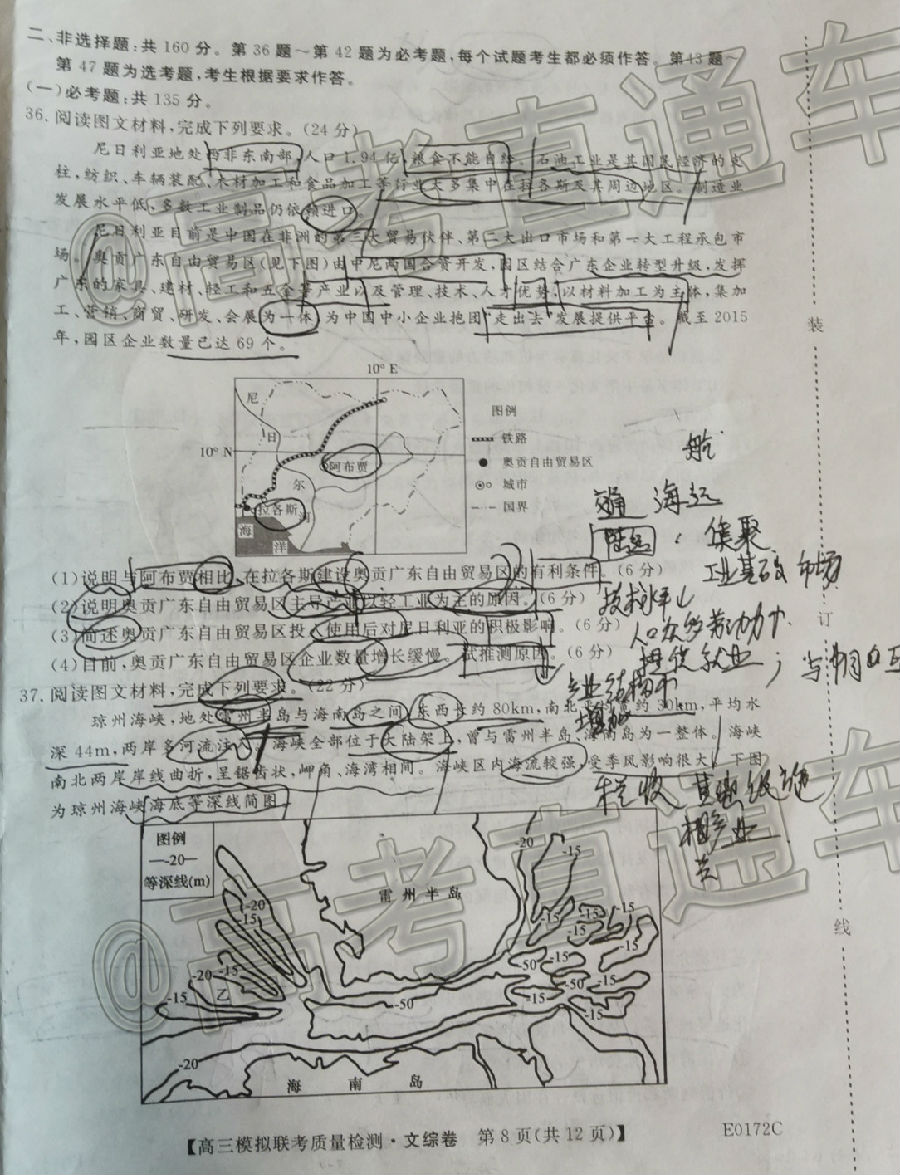 二、非选择题:共 160 分。第 36 题～第 42 题为必考题,每个试题考生都必须作答。第43 题～
第 47 题为选考题,考生根据要求作答。
(一)必考题:共 135 分。
36. 阅读图文材料,完成下列要求。(24 分)
尼日利亚地处西非东南部,人口 1.94 亿,粮食不能自给。石油工业是其国民经济的支
柱,纺织、车辆装配、木材加工和食品加工等行业大多集中在拉各斯及其周边地区。制造业
发展水平低,多数工业制品仍依赖进口。
尼日利亚目前是中国在非洲的第三大贸易伙伴、第二大出口市场和第一大工程承包市
场。奥贡广东自由贸易区(见下图)由中尼两国合资开发,园区结合广东企业转型升级,发挥
广东的家具、建材、轻工和五金等产业以及管理、技术、人才优势,以材料加工为主体,集加
工、营销、商贸、研发、会展为一体,为中国中小企业抱团“走出去”发展提供平台。截至 2015
年,园区企业数量已达 69 个。
10° E
尼
日
10° N
阿布贾
尔
拉各斯
河
海
洋
图例
铁路
奥贡自由贸易区
城市
国界
(1)说明与阿布贾相比,在拉各斯建设奥贡广东自由贸易区的有利条件。(6 分)
(2)说明奥贡广东自由贸易区主导产业以轻工业为主的原因。(6 分)
(3)简述奥贡广东自由贸易区投入使用后对尼日利亚的积极影响。(6 分)
(4)目前,奥贡广东自由贸易区企业数量增长缓慢。试推测原因。(6 分)
交通 海运
集聚
工业基础 市场
技术水平
人口众多 劳动力
提供就业
增加
税收 基础设施
相关产业
装
订
线
37. 阅读图文材料,完成下列要求。(22 分)
琼州海峡,地处雷州半岛与海南岛之间,东西长约 80km,南北平均宽约 30km,平均水
深 44m,两岸多河流注入。海峡全部位于大陆架上,曾与雷州半岛、海南岛为一整体。海峡
南北两岸岸线曲折,呈锯齿状,岬角、海湾相间。海峡区内海流较强,受季风影响很大。下图
为琼州海峡海底等深线简图。
图例
—-20—
等深线(m)
雷州半岛
-20
-15
-20
-15
-20
-15
乙
-15
-50
-50
-50
-15
-15
-15
-15
-15
-15
-15
-20
海 南 岛
【高三模拟联考质量检测·文综卷 第 8 页(共 12 页)】
E0172C
@高考直通车
@高考直通车